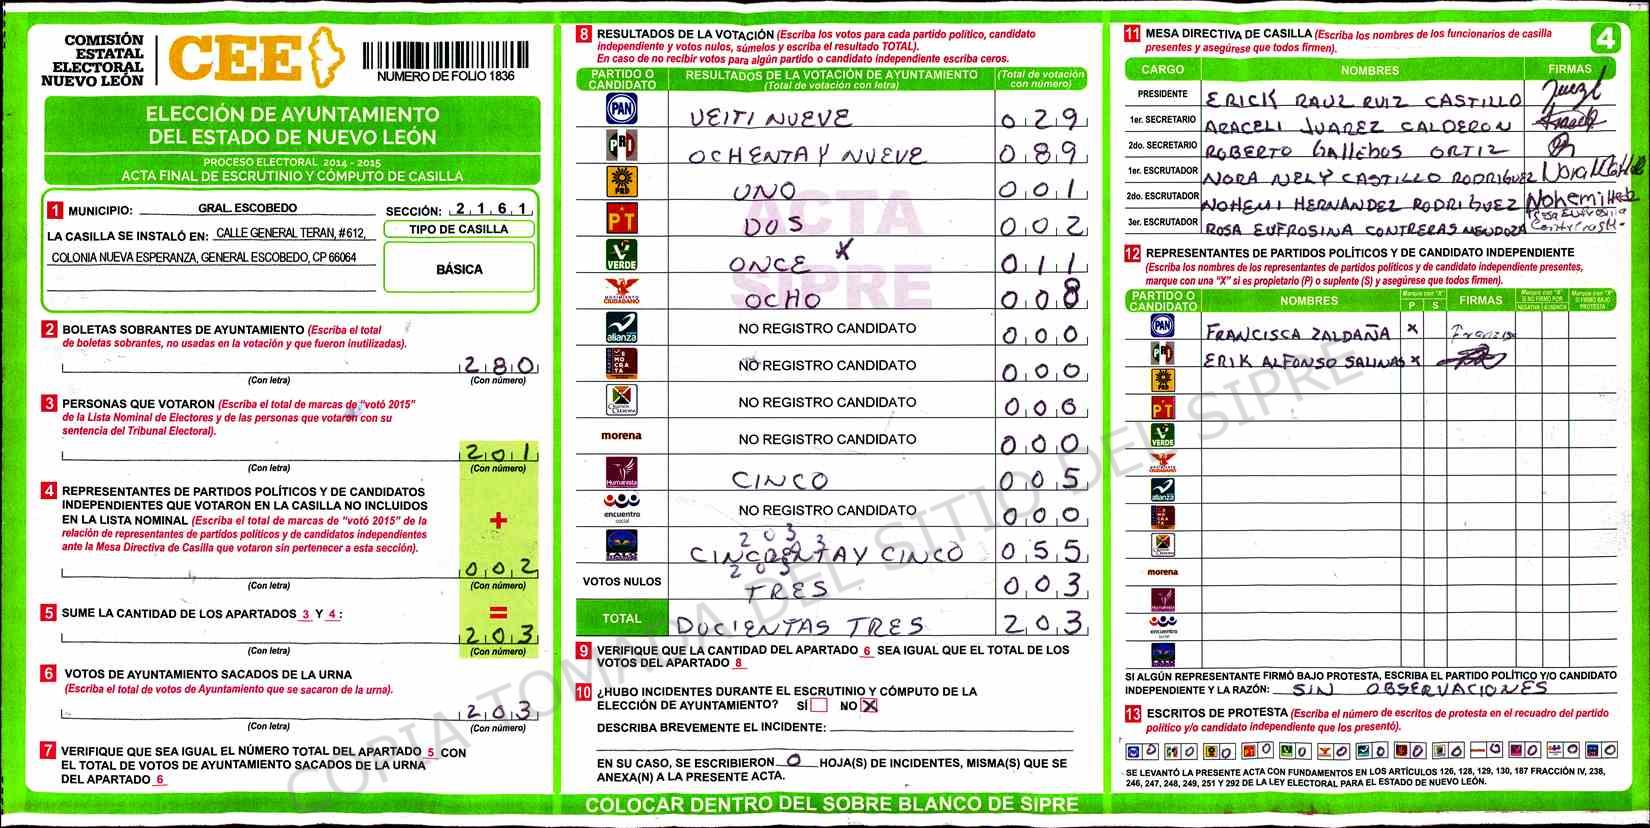 COMISIÓN
ESTATAL
ELECTORAL
NUEVO LEÓN
CEE
NUMERO DE FOLIO 1836
ELECCIÓN DE AYUNTAMIENTO
DEL ESTADO DE NUEVO LEÓN
PROCESO ELECTORAL 2014 - 2015
ACTA FINAL DE ESCRUTINIO Y CÓMPUTO DE CASILLA
1 MUNICIPIO: GRAL. ESCOBEDO SECCIÓN: 2 1 6 1
LA CASILLA SE INSTALÓ EN: CALLE GENERAL TERAN, #612,
COLONIA NUEVA ESPERANZA, GENERAL ESCOBEDO, CP 66064
TIPO DE CASILLA
BÁSICA
2 BOLETAS SOBRANTES DE AYUNTAMIENTO (Escriba el total
de boletas sobrantes, no usadas en la votación y que fueron inutilizadas).
2 8 0
(Con letra) (Con número)
3 PERSONAS QUE VOTARON (Escriba el total de marcas de "votó 2015"
de la Lista Nominal de Electores y de las personas que votaron con su
sentencia del Tribunal Electoral).
2 0 1
(Con letra) (Con número)
4 REPRESENTANTES DE PARTIDOS POLÍTICOS Y DE CANDIDATOS
INDEPENDIENTES QUE VOTARON EN LA CASILLA NO INCLUIDOS
EN LA LISTA NOMINAL (Escriba el total de marcas de "votó 2015" de la
relación de representantes de partidos políticos y de candidatos independientes
ante la Mesa Directiva de Casilla que votaron sin pertenecer a esta sección).
+
0 0 2
(Con letra) (Con número)
5 SUME LA CANTIDAD DE LOS APARTADOS 3 Y 4:
=
2 0 3
(Con letra) (Con número)
6 VOTOS DE AYUNTAMIENTO SACADOS DE LA URNA
(Escriba el total de votos de Ayuntamiento que se sacaron de la urna).
2 0 3
(Con letra) (Con número)
7 VERIFIQUE QUE SEA IGUAL EL NÚMERO TOTAL DEL APARTADO 5 CON
EL TOTAL DE VOTOS DE AYUNTAMIENTO SACADOS DE LA URNA
DEL APARTADO 6
8 RESULTADOS DE LA VOTACIÓN (Escriba los votos para cada partido político, candidato
independiente y votos nulos, súmelos y escriba el resultado TOTAL).
En caso de no recibir votos para algún partido o candidato independiente escriba ceros.
PARTIDO O CANDIDATO
RESULTADOS DE LA VOTACIÓN DE AYUNTAMIENTO
(Total de votación con letra)
(Total de votación con número)
PAN VEITI NUEVE 0 2 9
PRI OCHENTA Y NUEVE 0 8 9
PRD UNO 0 0 1
PT DOS 0 0 2
VERDE ONCE X 0 1 1
MOVIMIENTO CIUDADANO OCHO 0 0 8
alianza NO REGISTRO CANDIDATO 0 0 0
NO REGISTRO CANDIDATO 0 0 0
NO REGISTRO CANDIDATO 0 0 0
morena NO REGISTRO CANDIDATO 0 0 0
Humanista CINCO 0 0 5
encuentro social NO REGISTRO CANDIDATO 0 0 0
2 0 3 3
CINCUENTA Y CINCO 0 5 5
2 0 3
VOTOS NULOS TRES 0 0 3
TOTAL DUCIENTAS TRES 2 0 3
ACTA
SIPRE
9 VERIFIQUE QUE LA CANTIDAD DEL APARTADO 6 SEA IGUAL QUE EL TOTAL DE LOS
VOTOS DEL APARTADO 8
10 ¿HUBO INCIDENTES DURANTE EL ESCRUTINIO Y CÓMPUTO DE LA
ELECCIÓN DE AYUNTAMIENTO? SÍ NO X
DESCRIBA BREVEMENTE EL INCIDENTE:
EN SU CASO, SE ESCRIBIERON 0 HOJA(S) DE INCIDENTES, MISMA(S) QUE SE
ANEXA(N) A LA PRESENTE ACTA.
COLOCAR DENTRO DEL SOBRE BLANCO DE SIPRE
11 MESA DIRECTIVA DE CASILLA (Escriba los nombres de los funcionarios de casilla
presentes y asegúrese que todos firmen).
4
CARGO NOMBRES FIRMAS
PRESIDENTE ERICK RAUL RUIZ CASTILLO
1er. SECRETARIO ARACELI JUAREZ CALDERON
2do. SECRETARIO ROBERTO GALLEGOS ORTIZ
1er. ESCRUTADOR NORA NELY CASTILLO RODRIGUEZ
2do. ESCRUTADOR NOHEMI HERNANDEZ RODRIGUEZ
3er. ESCRUTADOR ROSA EUFROSINA CONTRERAS MENDOZA
12 REPRESENTANTES DE PARTIDOS POLÍTICOS Y DE CANDIDATO INDEPENDIENTE
(Escriba los nombres de los representantes de partidos políticos y de candidato independiente presentes,
marque con una "X" si es propietario (P) o suplente (S) y asegúrese que todos firmen).
PARTIDO O CANDIDATO NOMBRES Marque con "X" P S FIRMAS
PAN FRANCISCA ZALDAÑA X
PRI ERIK ALFONSO SALINAS X
PRD
PT
VERDE
alianza
morena
Humanista
encuentro
SI ALGÚN REPRESENTANTE FIRMÓ BAJO PROTESTA, ESCRIBA EL PARTIDO POLÍTICO Y/O CANDIDATO
INDEPENDIENTE Y LA RAZÓN: SIN OBSERVACIONES
13 ESCRITOS DE PROTESTA (Escriba el número de escritos de protesta en el recuadro del partido
político y/o candidato independiente que los presentó).
0 0 0 0 0 0 0 0 0 0 0 0 0
SE LEVANTÓ LA PRESENTE ACTA CON FUNDAMENTOS EN LOS ARTÍCULOS 126, 128, 129, 130, 187 FRACCIÓN IV, 238,
246, 247, 248, 249, 251 Y 292 DE LA LEY ELECTORAL PARA EL ESTADO DE NUEVO LEÓN.
COPIA TOMADA DEL SITIO DEL SIPRE